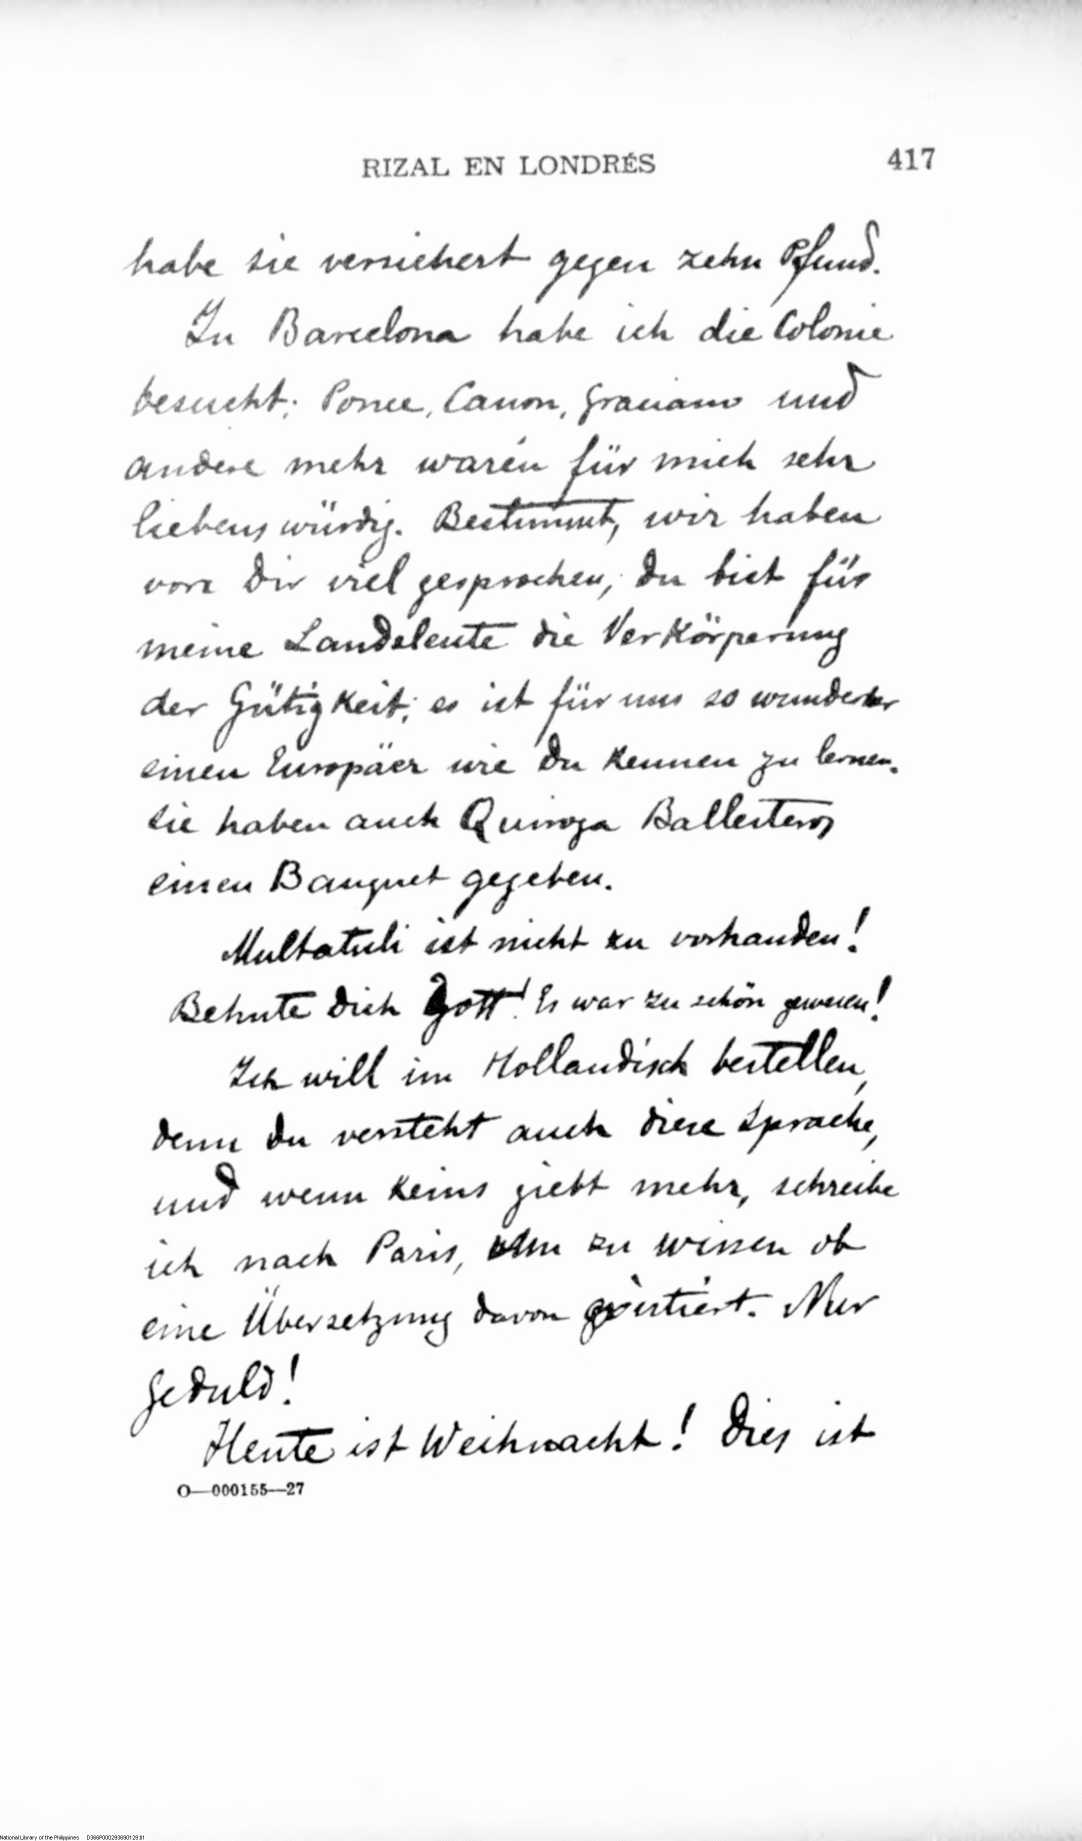 RIZAL EN LONDRÉS 417
habe sie versichert gegen zehn Pfund.
In Barcelona habe ich die Colonie
besucht; Ponce, Canon, Graciano und
andere mehr waren für mich sehr
liebenswürdig. Bestimmt, wir haben
von Dir viel gesprochen; Du bist für
meine Landsleute die Verkörperung
der Gütigkeit; es ist für uns so
einen Europäer wie Du kennen zu lernen.
Sie haben auch Quiroga Ballesteros
einen Banquet gegeben.
Multatuli ist nicht zu vorhanden!
Behute Dich Gott! Es war zu schön gewesen!
Ich will im Hollandisch bestellen,
denn Du versteht auch diese Sprache,
und wenn keins giebt mehr, schreibe
ich nach Paris, um zu wissen ob
eine Übersetzung davon existiert. Nur
Geduld!
Heute ist Weihnacht! Dies ist
O—000155—27
National Library of the Philippines